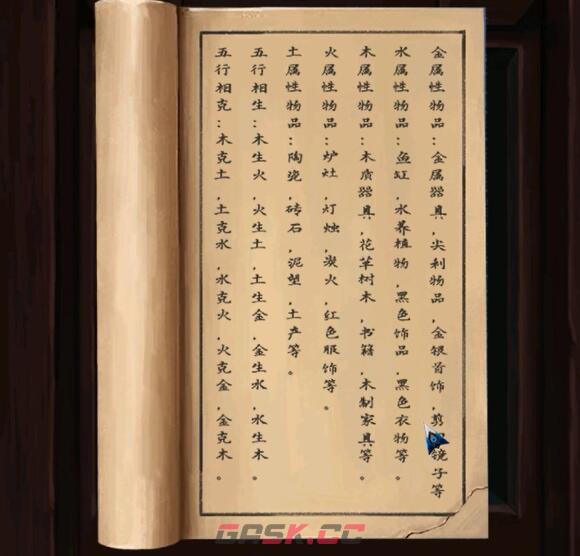 金属性物品：金属器具，尖利物品，金银首饰，剪镜子等
水属性物品：鱼缸，水养植物，黑色饰品，黑色衣物等。
木属性物品：木质器具，花草树木，书籍，木制家具等。
火属性物品：炉灶，灯烛，炭火，红色服饰等。
土属性物品：陶瓷，砖石，泥塑，土产等。
五行相生：木生火，火生土，土生金，金生水，水生木。
五行相克：木克土，土克水，水克火，火克金，金克木。
GASK.CC